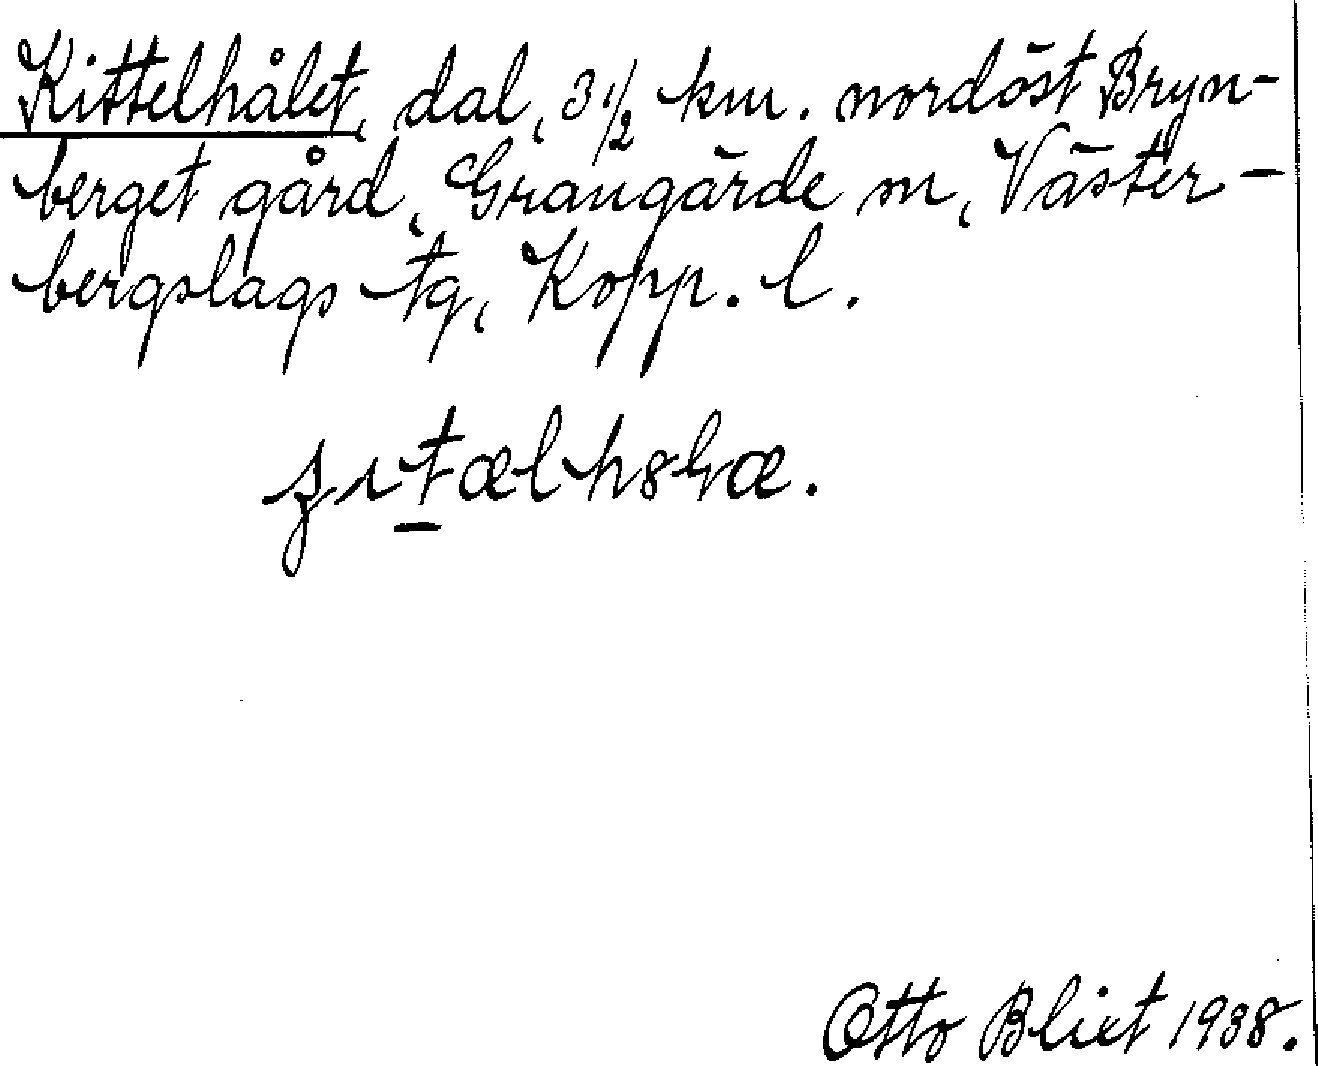 Kittelhålet, dal, 3 1/2 km. nordöst Bryn-
berget gård, Grangärde sn, Väster-
bergslags tg, Kopp. l.
Otto Blixt 1938.